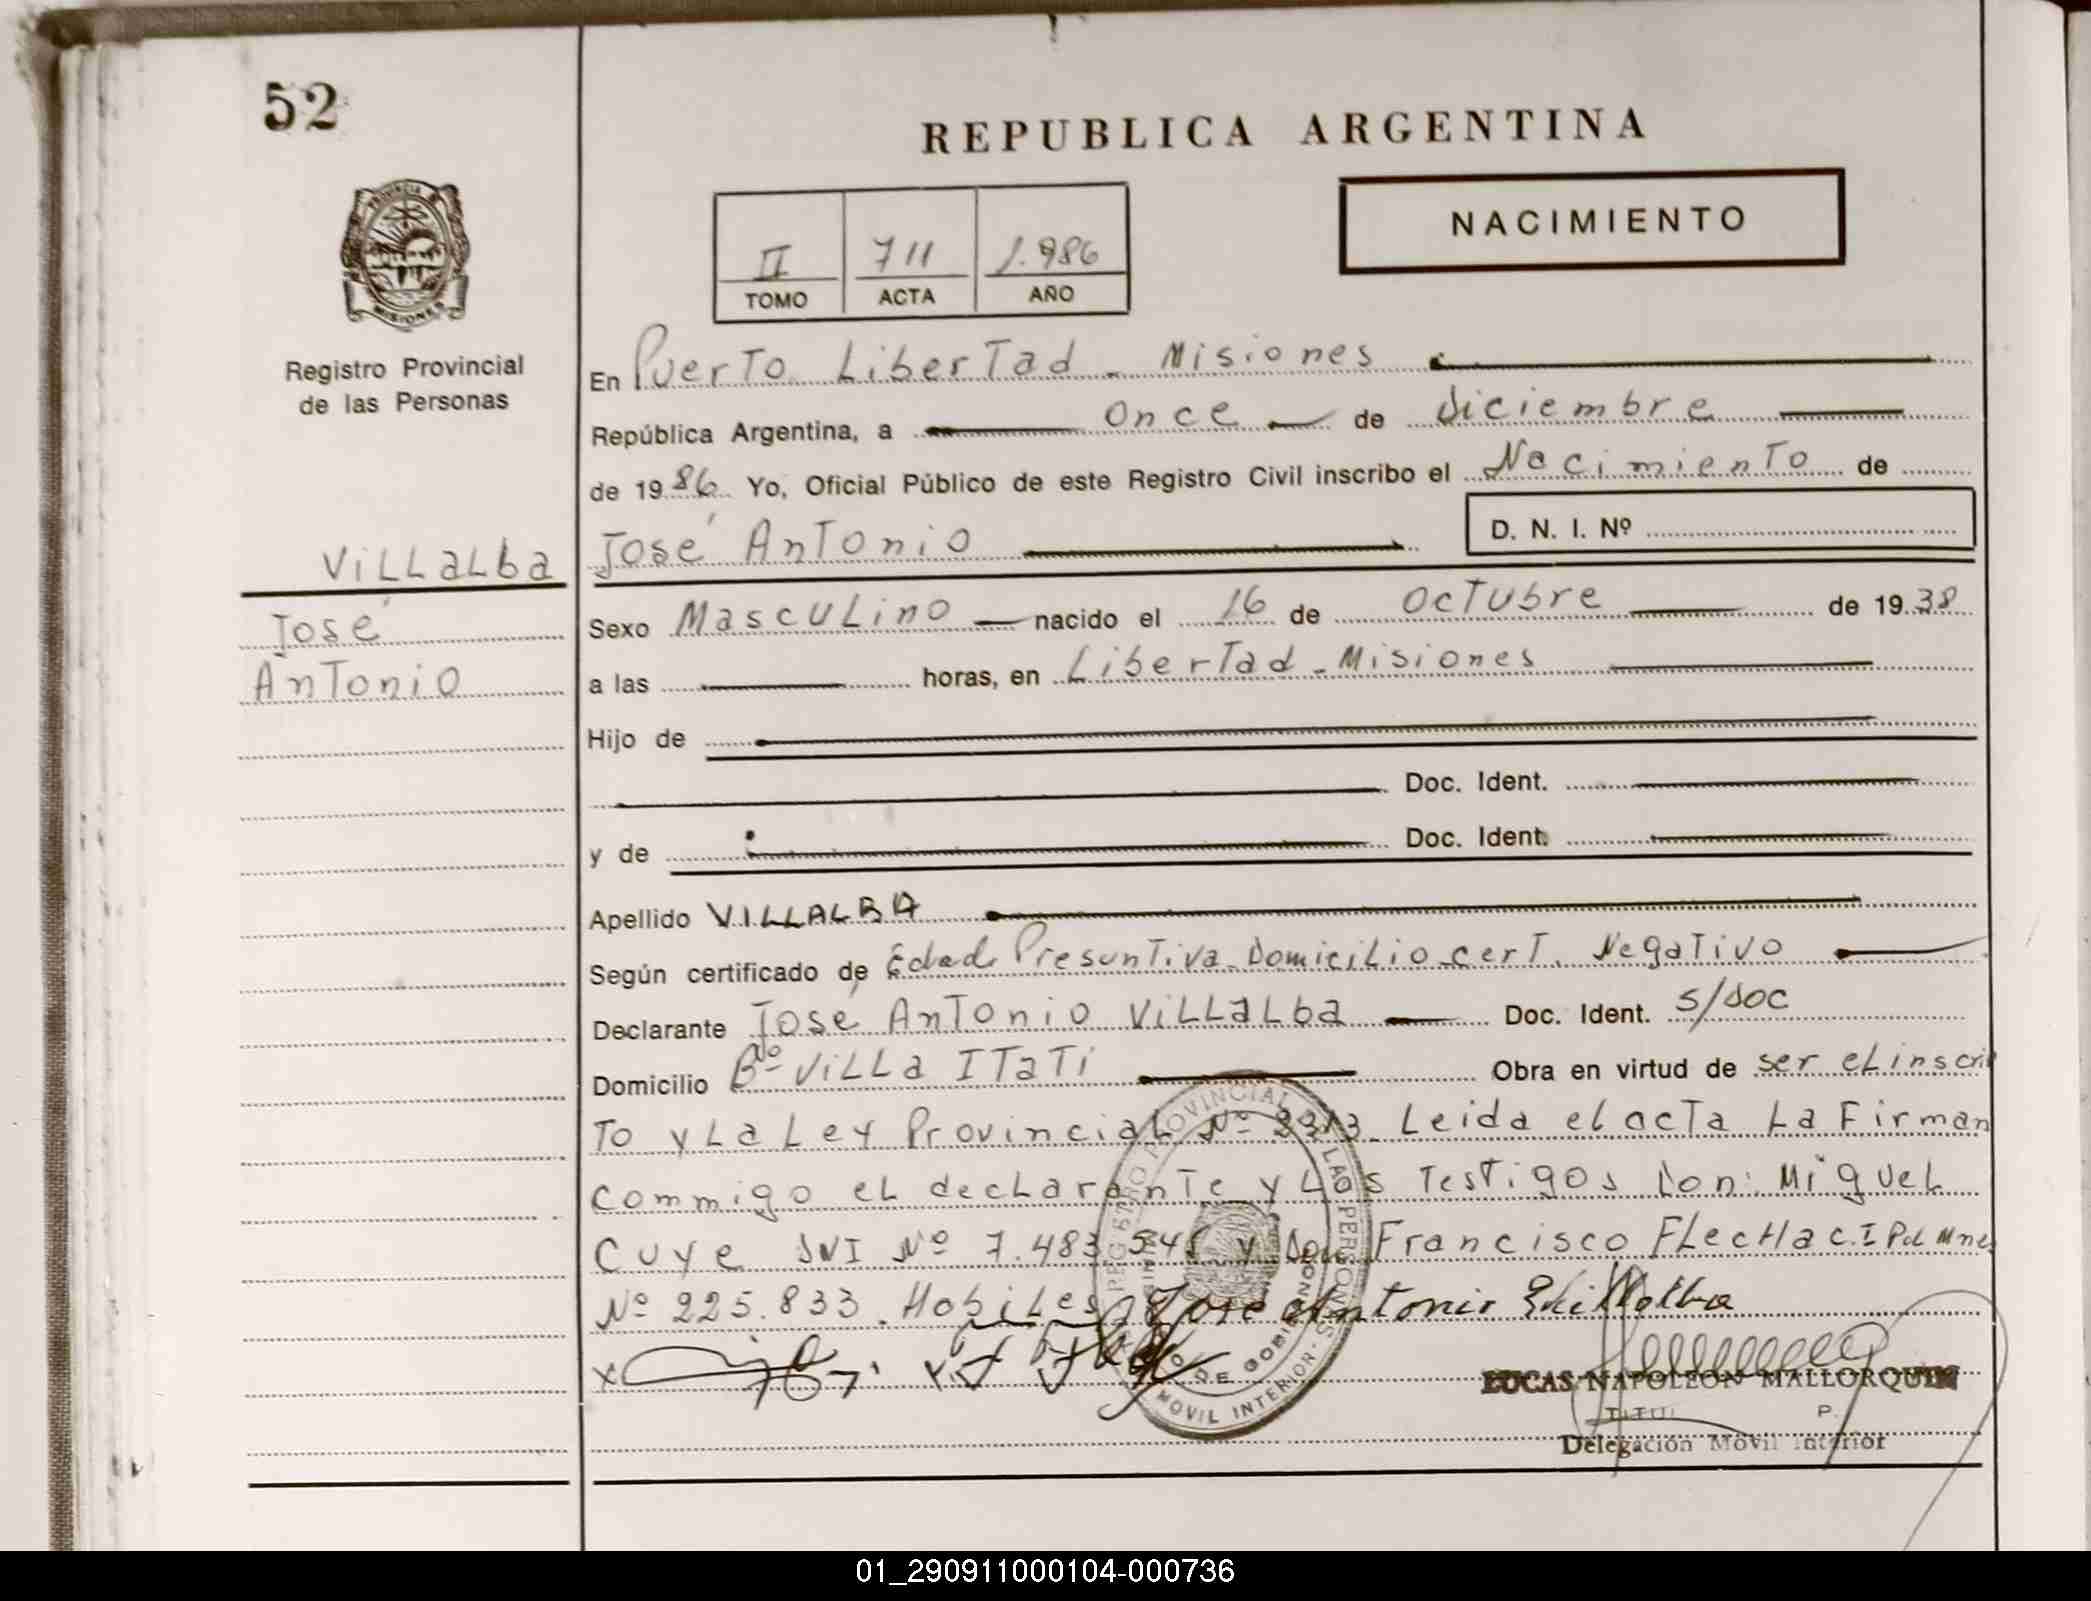 52
REPUBLICA ARGENTINA
PROVINCIA
MISIONES
NACIMIENTO
II 711 1.986
TOMO ACTA AÑO
Registro Provincial
de las Personas
En Puerto Libertad - Misiones
República Argentina, a once de diciembre
de 1986 Yo, Oficial Público de este Registro Civil inscribo el Nacimiento de
José Antonio D. N. I. Nº
Villalba
José
Antonio
Sexo Masculino nacido el 16 de octubre de 1938
a las horas, en Libertad - Misiones
Hijo de
Doc. Ident.
y de Doc. Ident.
Apellido VILLALBA
Según certificado de Edad Presuntiva Domicilio cert. Negativo
Declarante José Antonio Villalba Doc. Ident. s/doc
Domicilio Bº Villa Itati Obra en virtud de ser el inscri
to y la Ley Provincial Nº Leida el acta la Firman
commigo el declarante y los Testigos don: Miguel
Cuye DNI Nº 7.483 y Don Francisco Flecha C.I Pol Mnes
Nº 225.833. Habiles Jose Antonio Villalba
LUCAS NAPOLEON MALLORQUIN
Delegación Móvil Interior
MOVIL INTERIOR
01_290911000104-000736